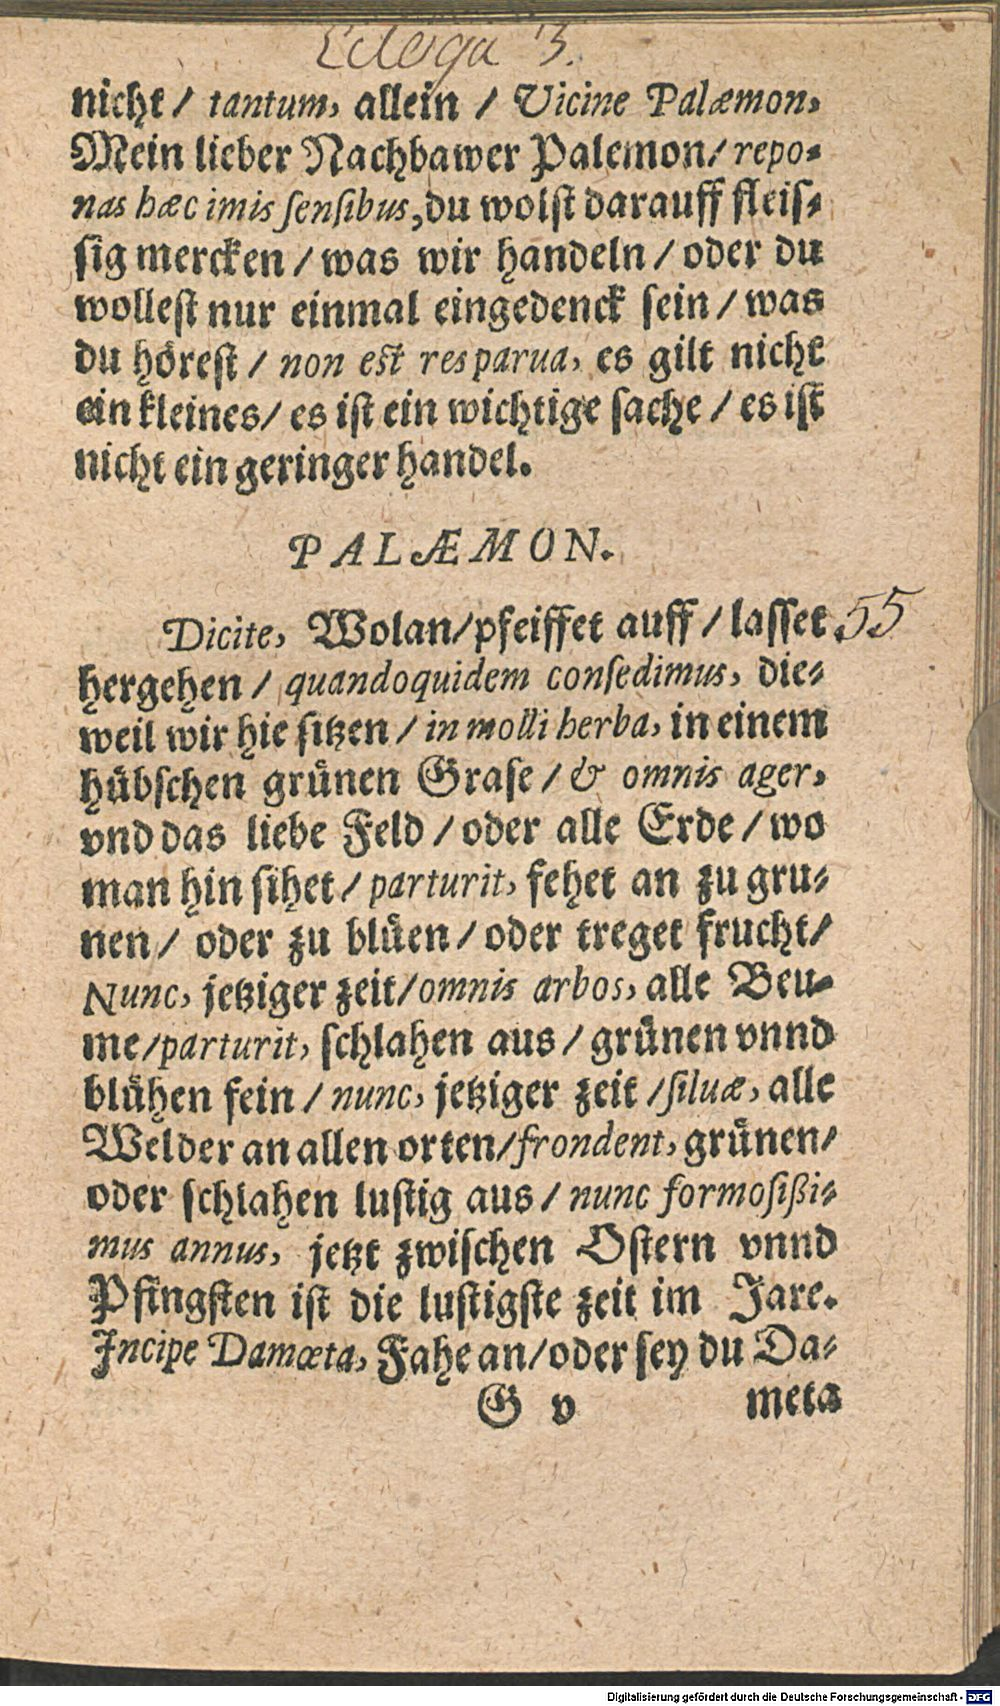 Ecloga 3.
nicht / tantum, allein / Vicine Palæmon,
Mein lieber Nachbawer Palemon / repo-
nas hæc imis sensibus, du wolst darauff fleis-
sig mercken / was wir handeln / oder du
wollest nur einmal eingedenck sein / was
du hörest / non est res parua, es gilt nicht
ein kleines / es ist ein wichtige sache / es ist
nicht ein geringer handel.
PALÆMON.
Dicite, Wolan / pfeiffet auff / lasset 55
hergehen / quandoquidem consedimus, die-
weil wir hie sitzen / in molli herba, in einem
hübschen grünen Grase / & omnis ager,
vnd das liebe Feld / oder alle Erde / wo
man hin sihet / parturit, fehet an zu gru-
nen / oder zu blüen / oder treget frucht /
Nunc, jetziger zeit / omnis arbos, alle Beu-
me / parturit, schlahen aus / grünen vnnd
blühen fein / nunc, jetziger zeit / siluæ, alle
Welder an allen orten / frondent, grünen /
oder schlahen lustig aus / nunc formosißi-
mus annus, jetzt zwischen Ostern vnnd
Pfingsten ist die lustigste zeit im Jare.
Incipe Damœta, Fahe an / oder sey du Da-
G v meta
Digitalisierung gefördert durch die Deutsche Forschungsgemeinschaft - DFG